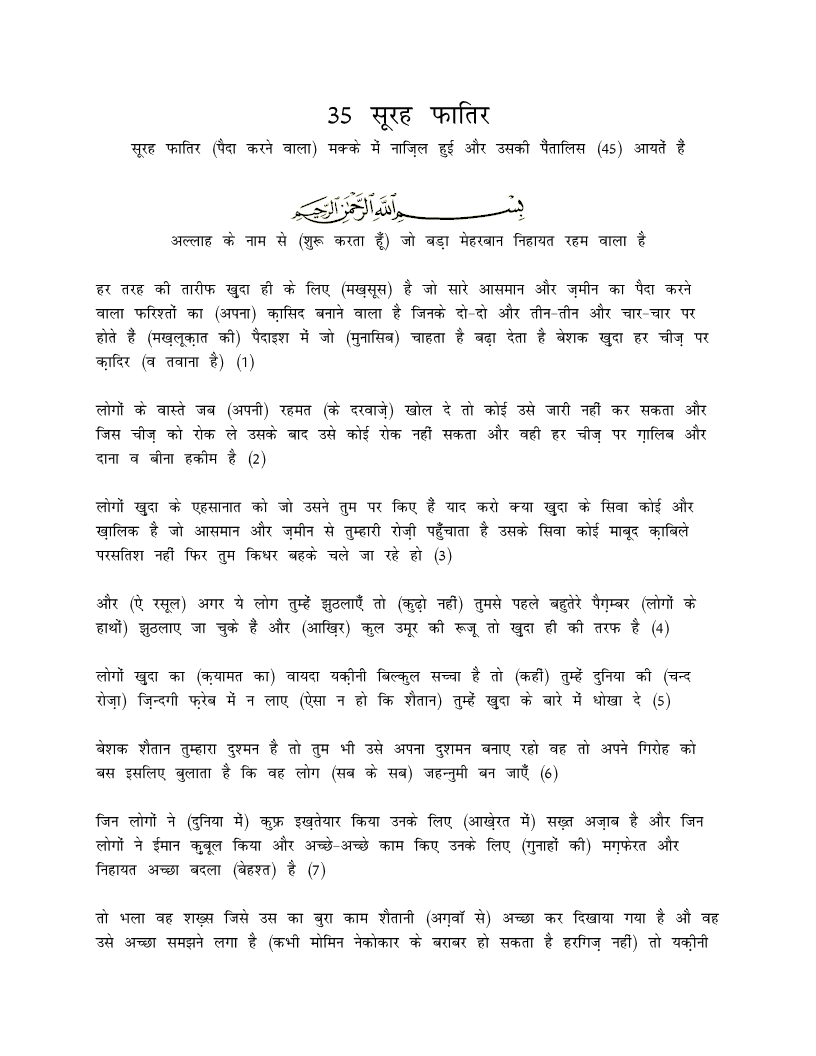 35 सूरह फातिर
सूरह फातिर (पैदा करने वाला) मक्के में नाज़िल हुई और उसकी पैंतालिस (45) आयतें हैं
بِسْمِ اللهِ الرَّحْمٰنِ الرَّحِيمِ
अल्लाह के नाम से (शुरू करता हूँ) जो बड़ा मेहरबान निहायत रहम वाला है
हर तरह की तारीफ खु़दा ही के लिए (मख़सूस) है जो सारे आसमान और ज़मीन का पैदा करने
वाला फरिश्तों का (अपना) क़ासिद बनाने वाला है जिनके दो-दो और तीन-तीन और चार-चार पर
होते हैं (मख़लूक़ात की) पैदाइश में जो (मुनासिब) चाहता है बढ़ा देता है बेशक खु़दा हर चीज़ पर
क़ादिर (व तवाना है) (1)
लोगों के वास्ते जब (अपनी) रहमत (के दरवाजे़) खोल दे तो कोई उसे जारी नहीं कर सकता और
जिस चीज़ को रोक ले उसके बाद उसे कोई रोक नहीं सकता और वही हर चीज़ पर ग़ालिब और
दाना व बीना हकीम है (2)
लोगों खु़दा के एहसानात को जो उसने तुम पर किए हैं याद करो क्या खु़दा के सिवा कोई और
ख़ालिक है जो आसमान और ज़मीन से तुम्हारी रोज़ी पहुँचाता है उसके सिवा कोई माबूद क़ाबिले
परसतिश नहीं फिर तुम किधर बहके चले जा रहे हो (3)
और (ऐ रसूल) अगर ये लोग तुम्हें झुठलाएँ तो (कुढ़ो नहीं) तुमसे पहले बहुतेरे पैग़म्बर (लोगों के
हाथों) झुठलाए जा चुके हैं और (आख़िर) कुल उमूर की रूजू तो खु़दा ही की तरफ है (4)
लोगों खु़दा का (क़यामत का) वायदा यक़ीनी बिल्कुल सच्चा है तो (कहीं) तुम्हें दुनिया की (चन्द
रोज़ा) ज़िन्दगी फ़रेब में न लाए (ऐसा न हो कि शैतान) तुम्हें खु़दा के बारे में धोखा दे (5)
बेशक शैतान तुम्हारा दुश्मन है तो तुम भी उसे अपना दुशमन बनाए रहो वह तो अपने गिरोह को
बस इसलिए बुलाता है कि वह लोग (सब के सब) जहन्नुमी बन जाएँ (6)
जिन लोगों ने (दुनिया में) कुफ्र इख़तेयार किया उनके लिए (आखे़रत में) सख़्त अज़ाब है और जिन
लोगों ने ईमान कु़बूल किया और अच्छे-अच्छे काम किए उनके लिए (गुनाहों की) मग़फेरत और
निहायत अच्छा बदला (बेहश्त) है (7)
तो भला वह शख़्स जिसे उस का बुरा काम शैतानी (अग़वॉ से) अच्छा कर दिखाया गया है औ वह
उसे अच्छा समझने लगा है (कभी मोमिन नेकोकार के बराबर हो सकता है हरगिज़ नहीं) तो यक़ीनी